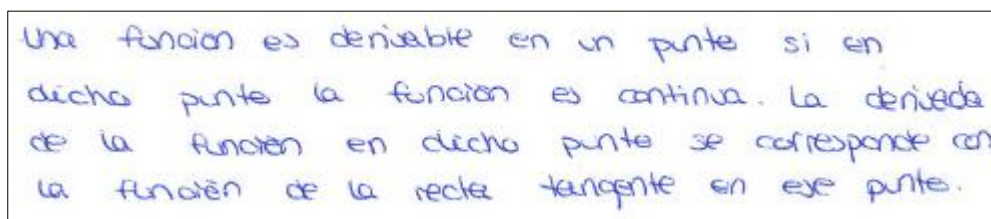 Una función es derivable en un punto si en
dicho punto la función es continua. La derivada
de la función en dicho punto se corresponde con
la función de la recta tangente en ese punto.